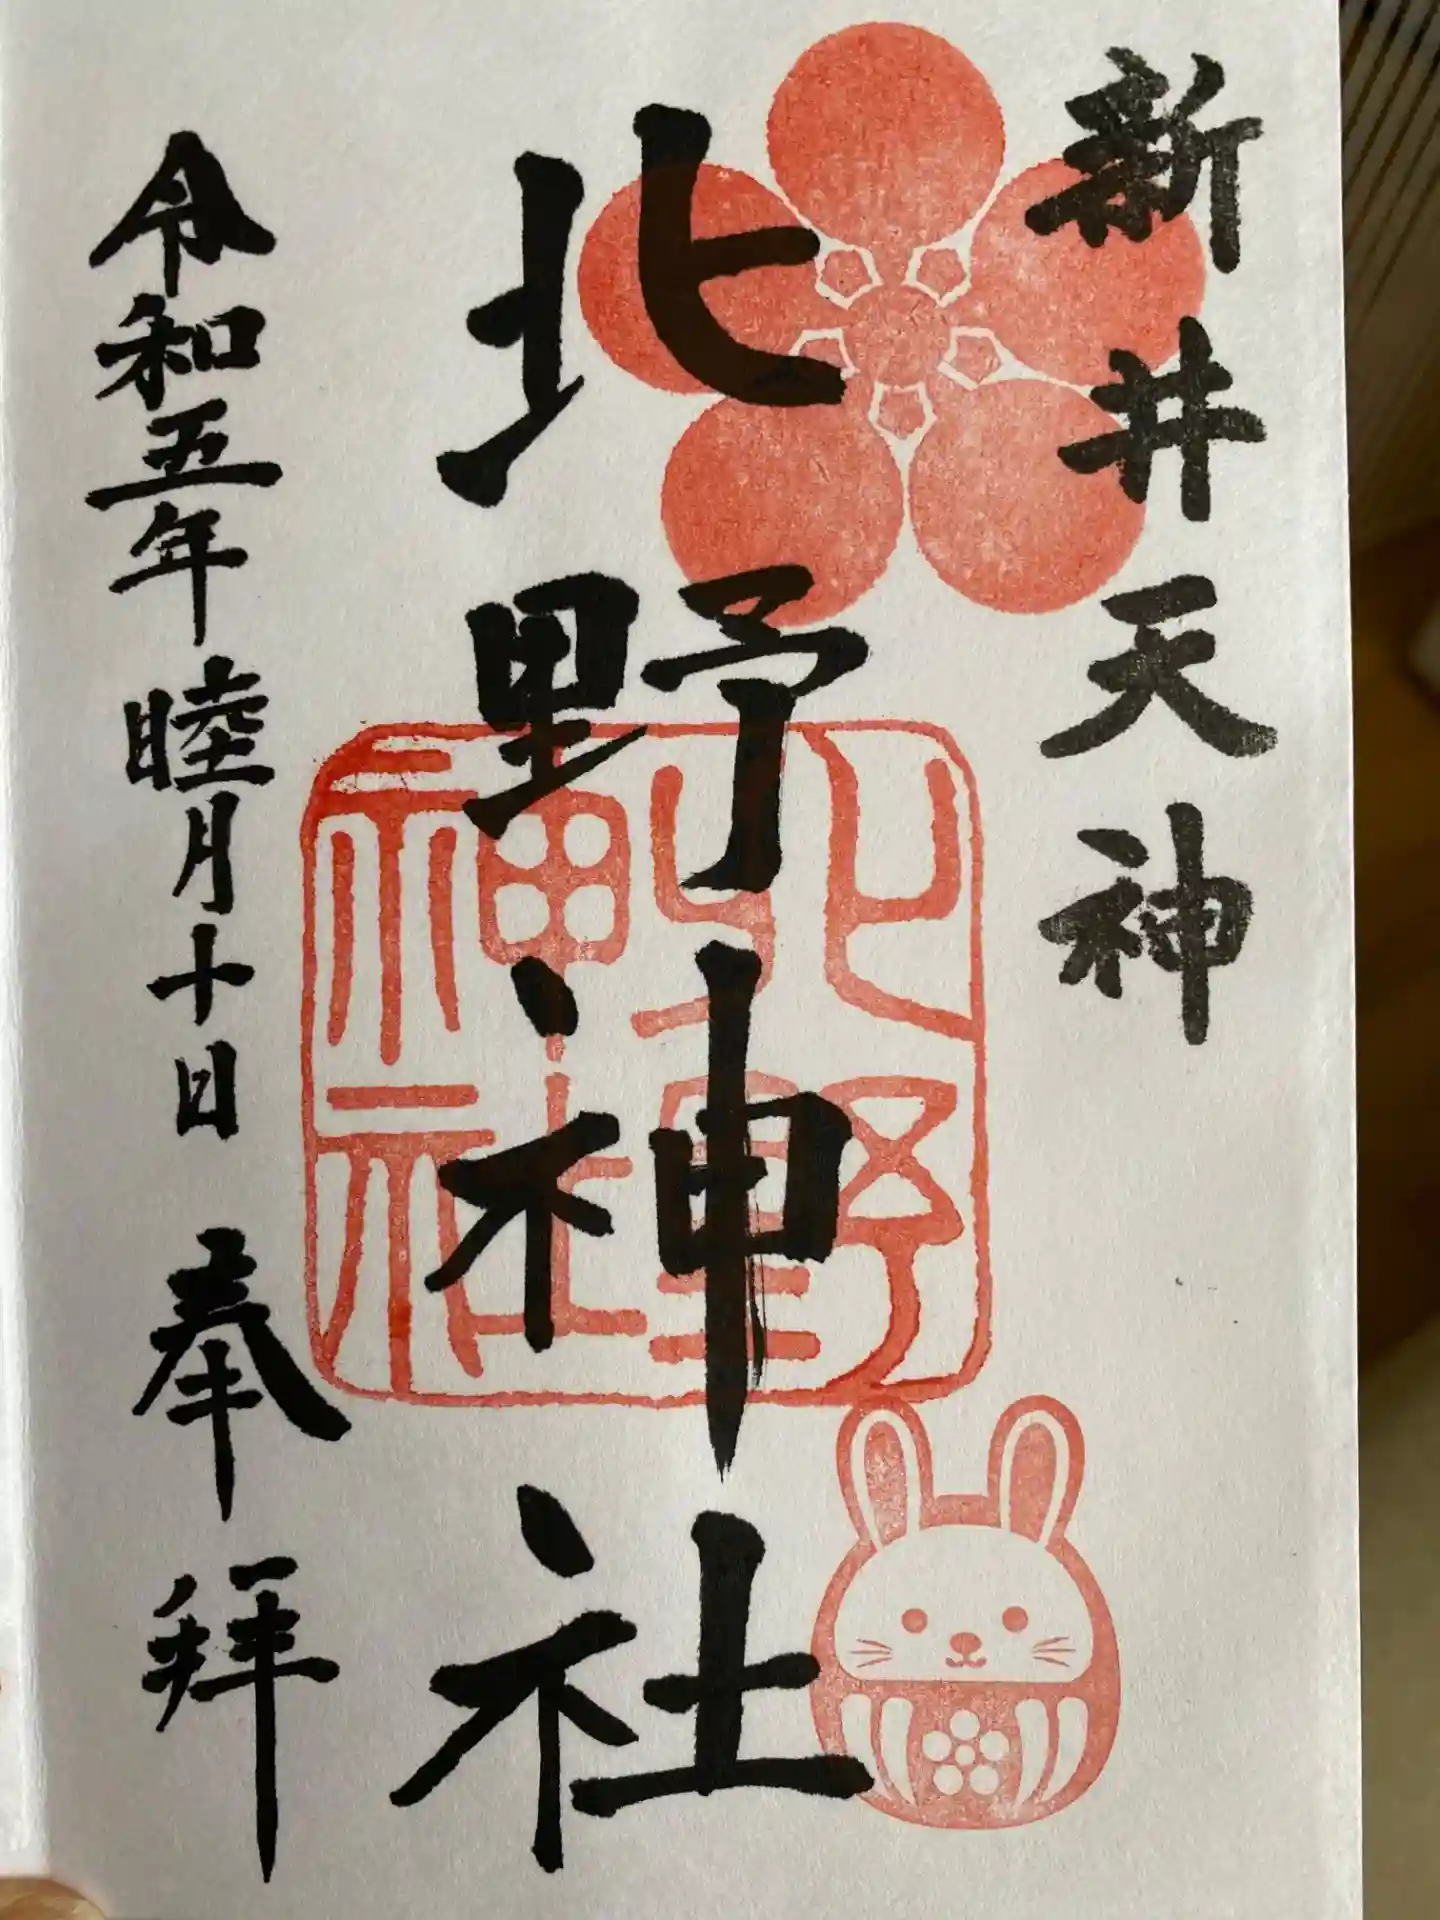 新井天神
北野神社
北野神社
令和五年睦月十日 奉拝